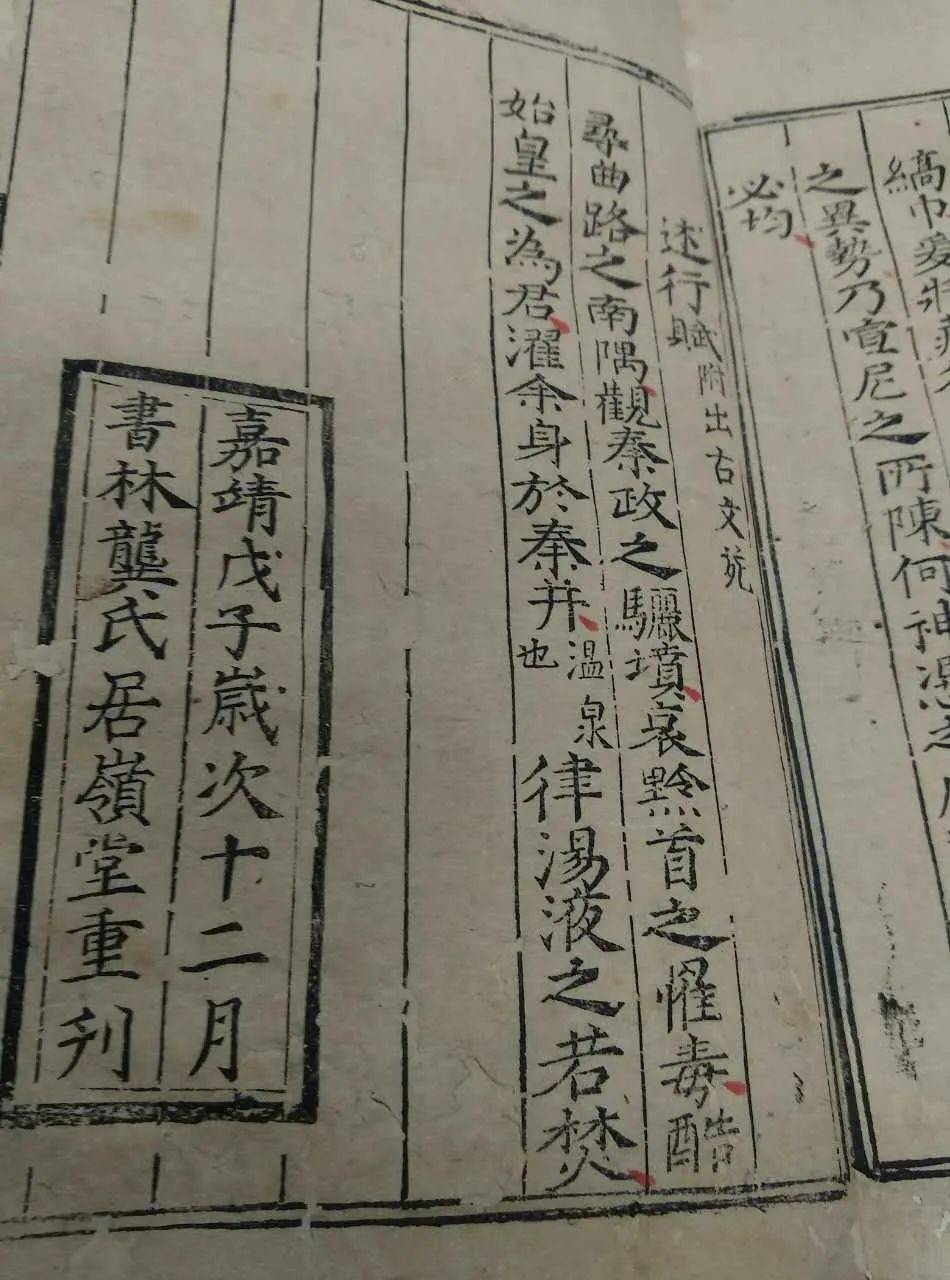 縞巾爰將
之異勢乃宣尼之所陳何神憑之
必均
述行賦附出古文苑
尋曲路之南隅觀秦政之驪墳哀黔首之罹毒酷
始皇之為君濯余身於秦井温泉也律湯液之若焚
嘉靖戊子歲次十二月
書林龔氏居嶺堂重刋